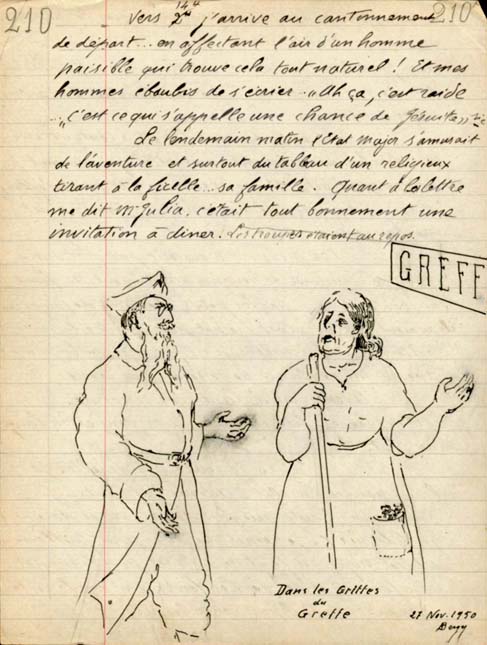 210
210
Vers 2h 14h j'arrive au cantonnement
de départ... en affectant l'air d'un homme
paisible qui trouve cela tout naturel ! Et mes
hommes éboubis de s'écrier. "Ah ça, c'est raide
"c'est ce qui s'appelle une chance de Jésuite"
Le lendemain matin l'Etat major s'amusait
de l'aventure et surtout du tableau d'un religieux
tirant à la ficelle... sa famille. Quant à la lettre
me dit Mr Julia, c'était tout bonnement une
invitation à diner. Les troupes étaient au repos.
GREFF
Dans les Griffes
du
Greffe
27 Nov. 1950